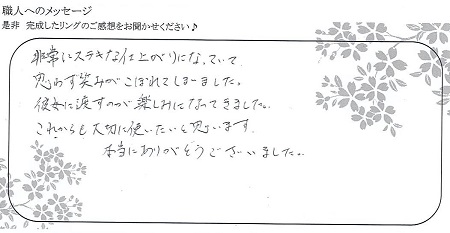 職人へのメッセージ
是非 完成したリングのご感想をお聞かせください♪
非常にステキな仕上がりになっていて
思わず笑みがこぼれてしまいました。
彼女に渡すのが楽しみになってきました。
これからも大切に使いたいと思います。
本当にありがとうございました。